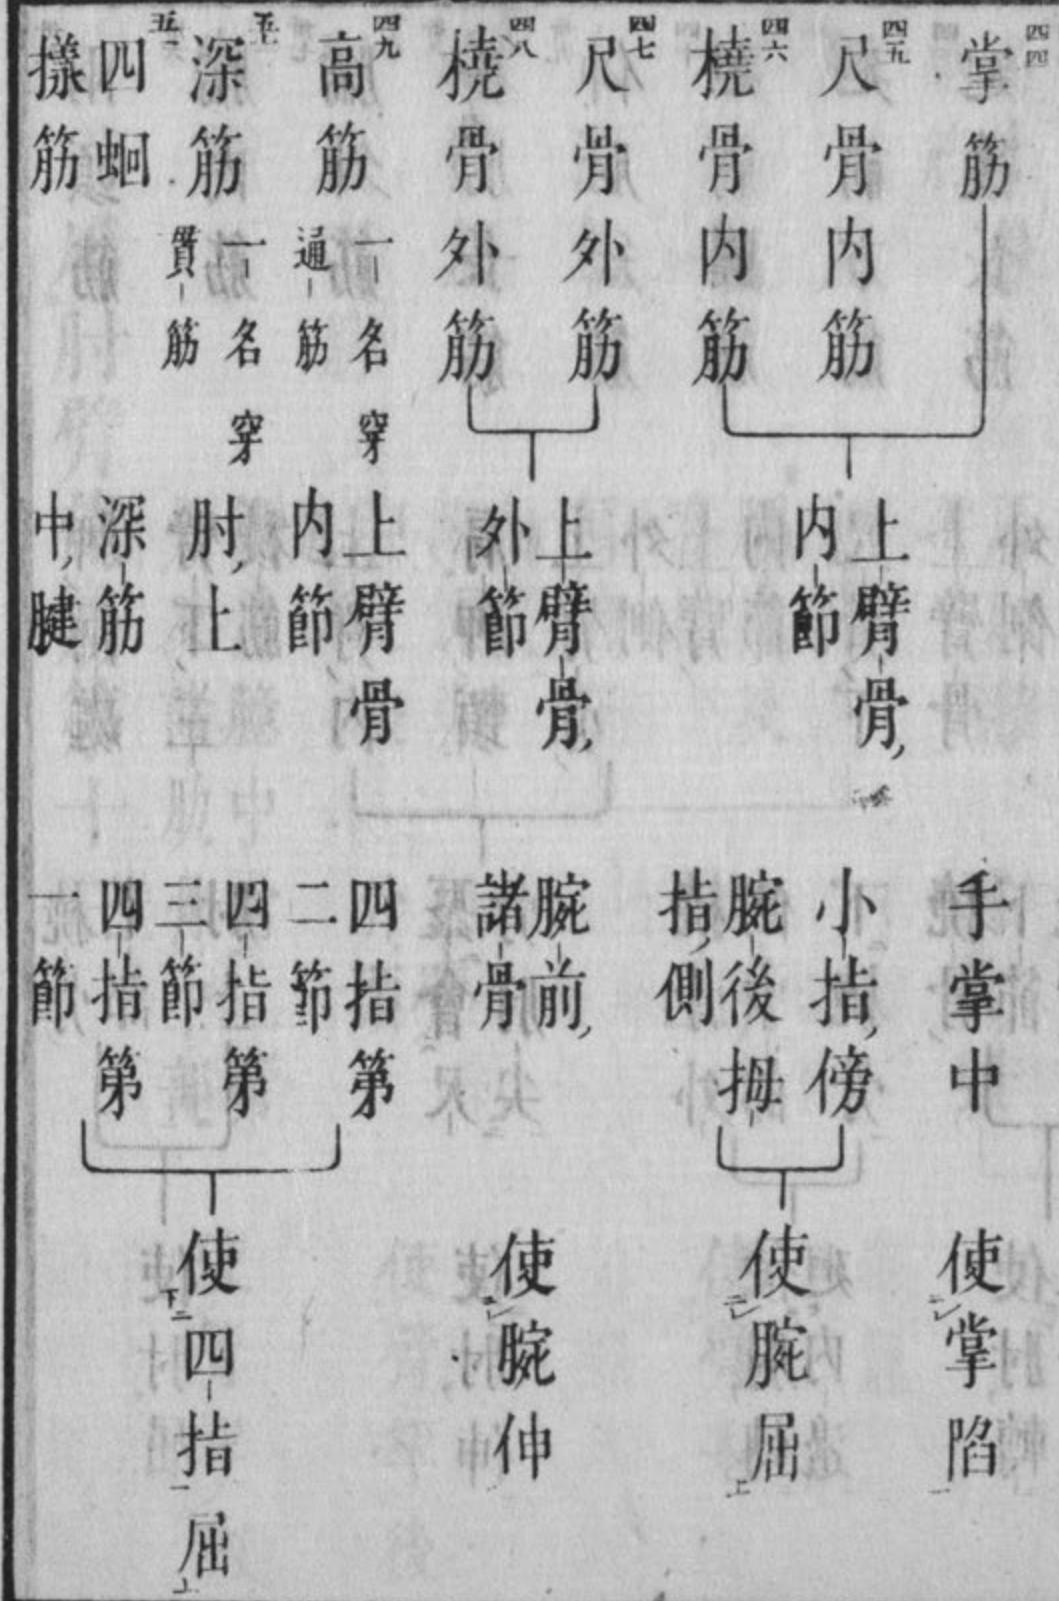 四四
掌筋
四五
尺骨内筋
四六
橈骨内筋
上臂骨,
内節
手掌中
小指,傍
腕後拇
指,側
使掌陷
使腕屈
四七
尺骨外筋
四八
橈骨外筋
上臂骨,
外節
腕前,
諸骨
使腕伸
四九
高筋
一名穿
通筋
上臂骨
内節
四指第
二節
五十
深筋
一名穿
貫筋
肘,上
四指第
三節
五一
四蛔
樣筋
深筋
中,腱
四指第
一節
使四指屈